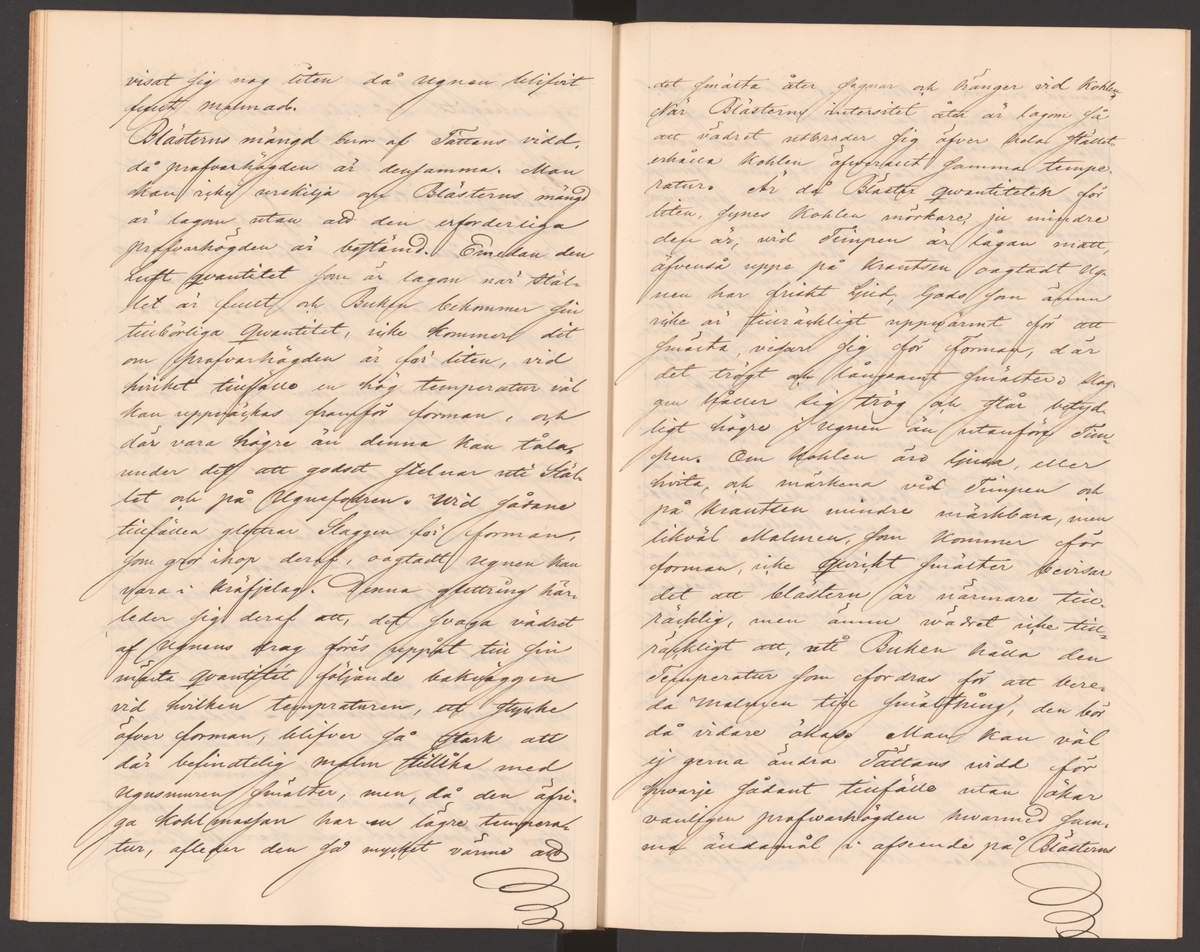 visat sig nog liten då ugnen blifvit
fullt malmad.
Blästerns mängd beror af Tättans vidd,
då prafvarhögden är densamma. Man
kan icke urskilja om Blästerns mängd
är lagom utan att den erforderliga
prafvarhögden är bestämd. Emedan den
Luft qvantitet som är lagom när Stäl-
let är fullt och Buken bekommer sin
tillbörliga qvantitet, icke kommer dit
om prafvarhögden är för liten, vid
hvilket tillfälle en hög temperatur väl
kan uppväckas framför forman, och
där vara högre än denna kan tåla,
under det att godset stelnar uti Stäl-
let och på Ugnsfodren. Wid sådane
tillfällen glittrar Slaggen för forman,
som gror ihop deraf, oagtadt ugnen kan
vara i kräfjelag. Denna glittring här-
leder sig deraf att, det svaga vädret
af Ugnens drag föres uppåt till sin
mästa qvantitet följande bakväggen
vid hvilken tempraturen, ett stycke
öfver forman, blifver så stark att
där befintelig malm tillika med
Ugnsmuren smälter, men, då den öfri-
ga kohlmassan har en lägre tempera-
tur, aflefer den så mycket värme att
det smälta åter stegnar och hänger vid kohlen,
När Blästerns intensitet åter är lagom så
att vädret utbreder sig öfver hela stället
erhålla kohlen öfverallt samma tempe-
ratur. Är då Bläster qwantiteten för
liten, synes kohlen mörkare, ju mindre
den är, vid Timpen är lågan matt,
äfvenså uppe på krantsen oagtadt Ug-
nen har friskt ljud, Gods, som ännu
icke är tillräckligt uppvärmt för att
smälta, visar sig för Forman, där
det trögt och långsamt smälter. Slag-
gen håller sig trög och står betyd-
ligt högre i Ugnen än utanföre Tim-
pen. Om Kohlen äro ljusa, eller
hvita, och märkena vid Timpen och
på krantsen mindre märkbara, men
likväl Malmen, som kommer för
forman, icke qvickt smälter bevisar
det att blästern är närmare till-
räcklig, men ännu wädret icke till-
räckligt att, uti Buken hålla den
Temperatur som fordras för att bere-
da Malmen till smältning, den bör
då vidare ökas. Man kan väl
ej gerna ändra Tättans vidd för
hwarje sådant tillfälle utan ökar
vanligen prafwarhögden hwarmed sam-
ma ändamål i afseende på Blästerns